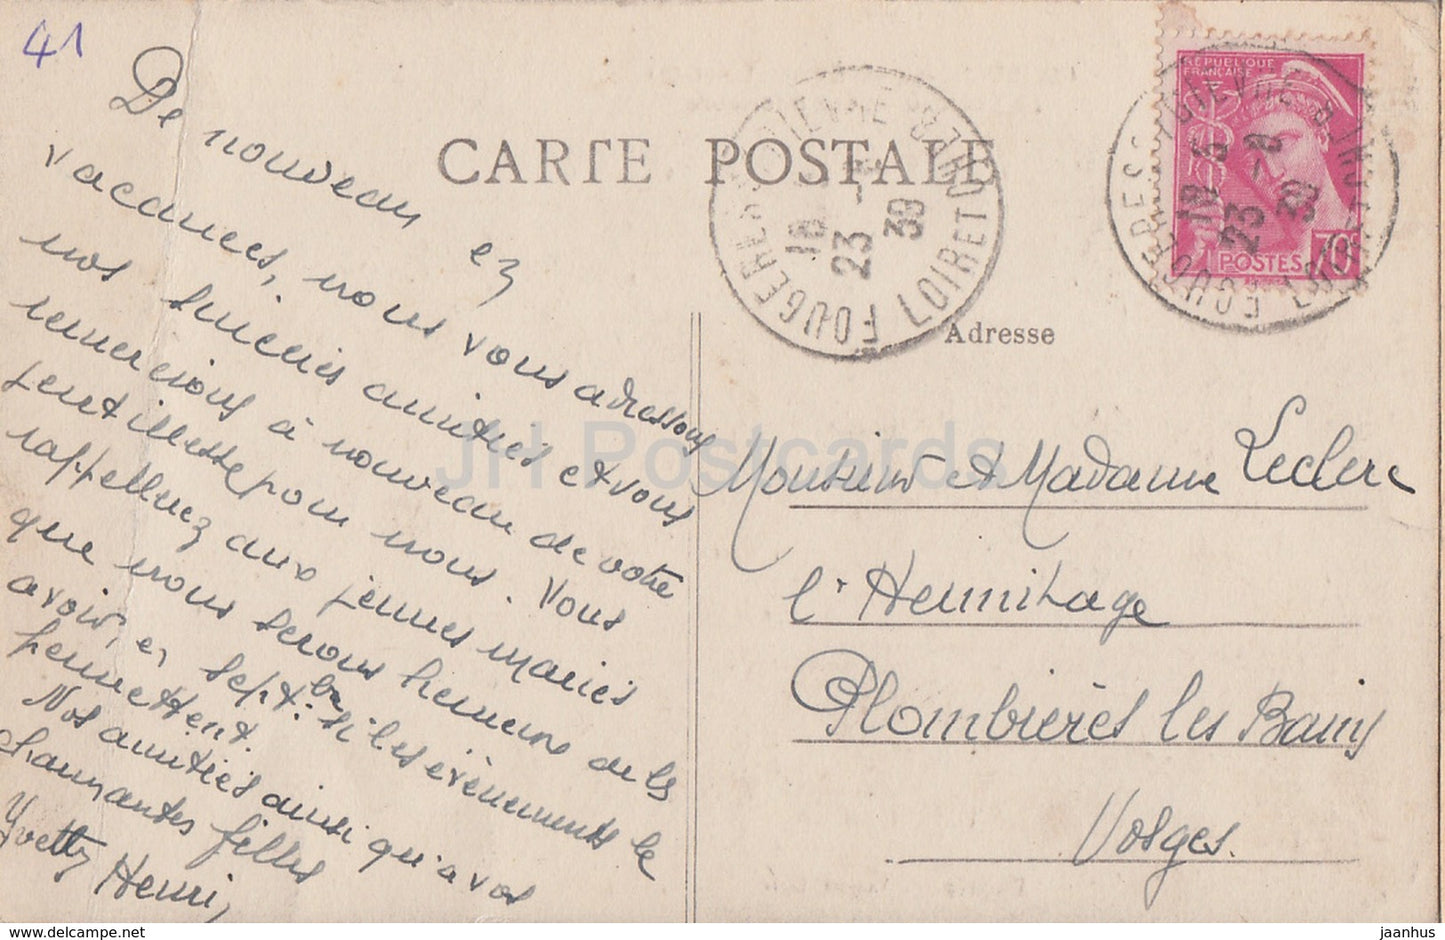 41
De nouveau en
vacances, nous vous adressons
nos sincères amitiés et vous
remercions à nouveau de votre
gentillesse pour nous. Vous
rappellerez aux jeunes mariés
que nous serons heureux de les
avoir, en Septbre s'il les évènements le
permettent.
Nos amitiés ainsi qu'a vos
charmantes filles
Yvette Henri
CARTE POSTALE
FOUGERES LOIRET
18
23 - 8
39
REPUBLIQUE
FRANÇAISE
POSTES
70c
18
23 - 8
39
LOIRET
Adresse
Monsieur et Madame Leclerc
l'Hermitage
Plombières les Bains
Vosges.
JH Postcards
delcampe.net
jaanhus